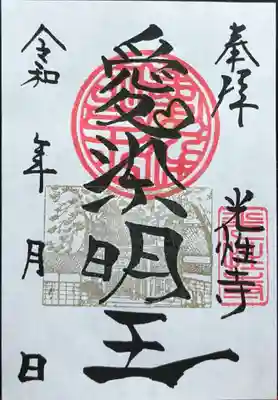 奉拝
愛染明王
光性寺
令和 年 月 日